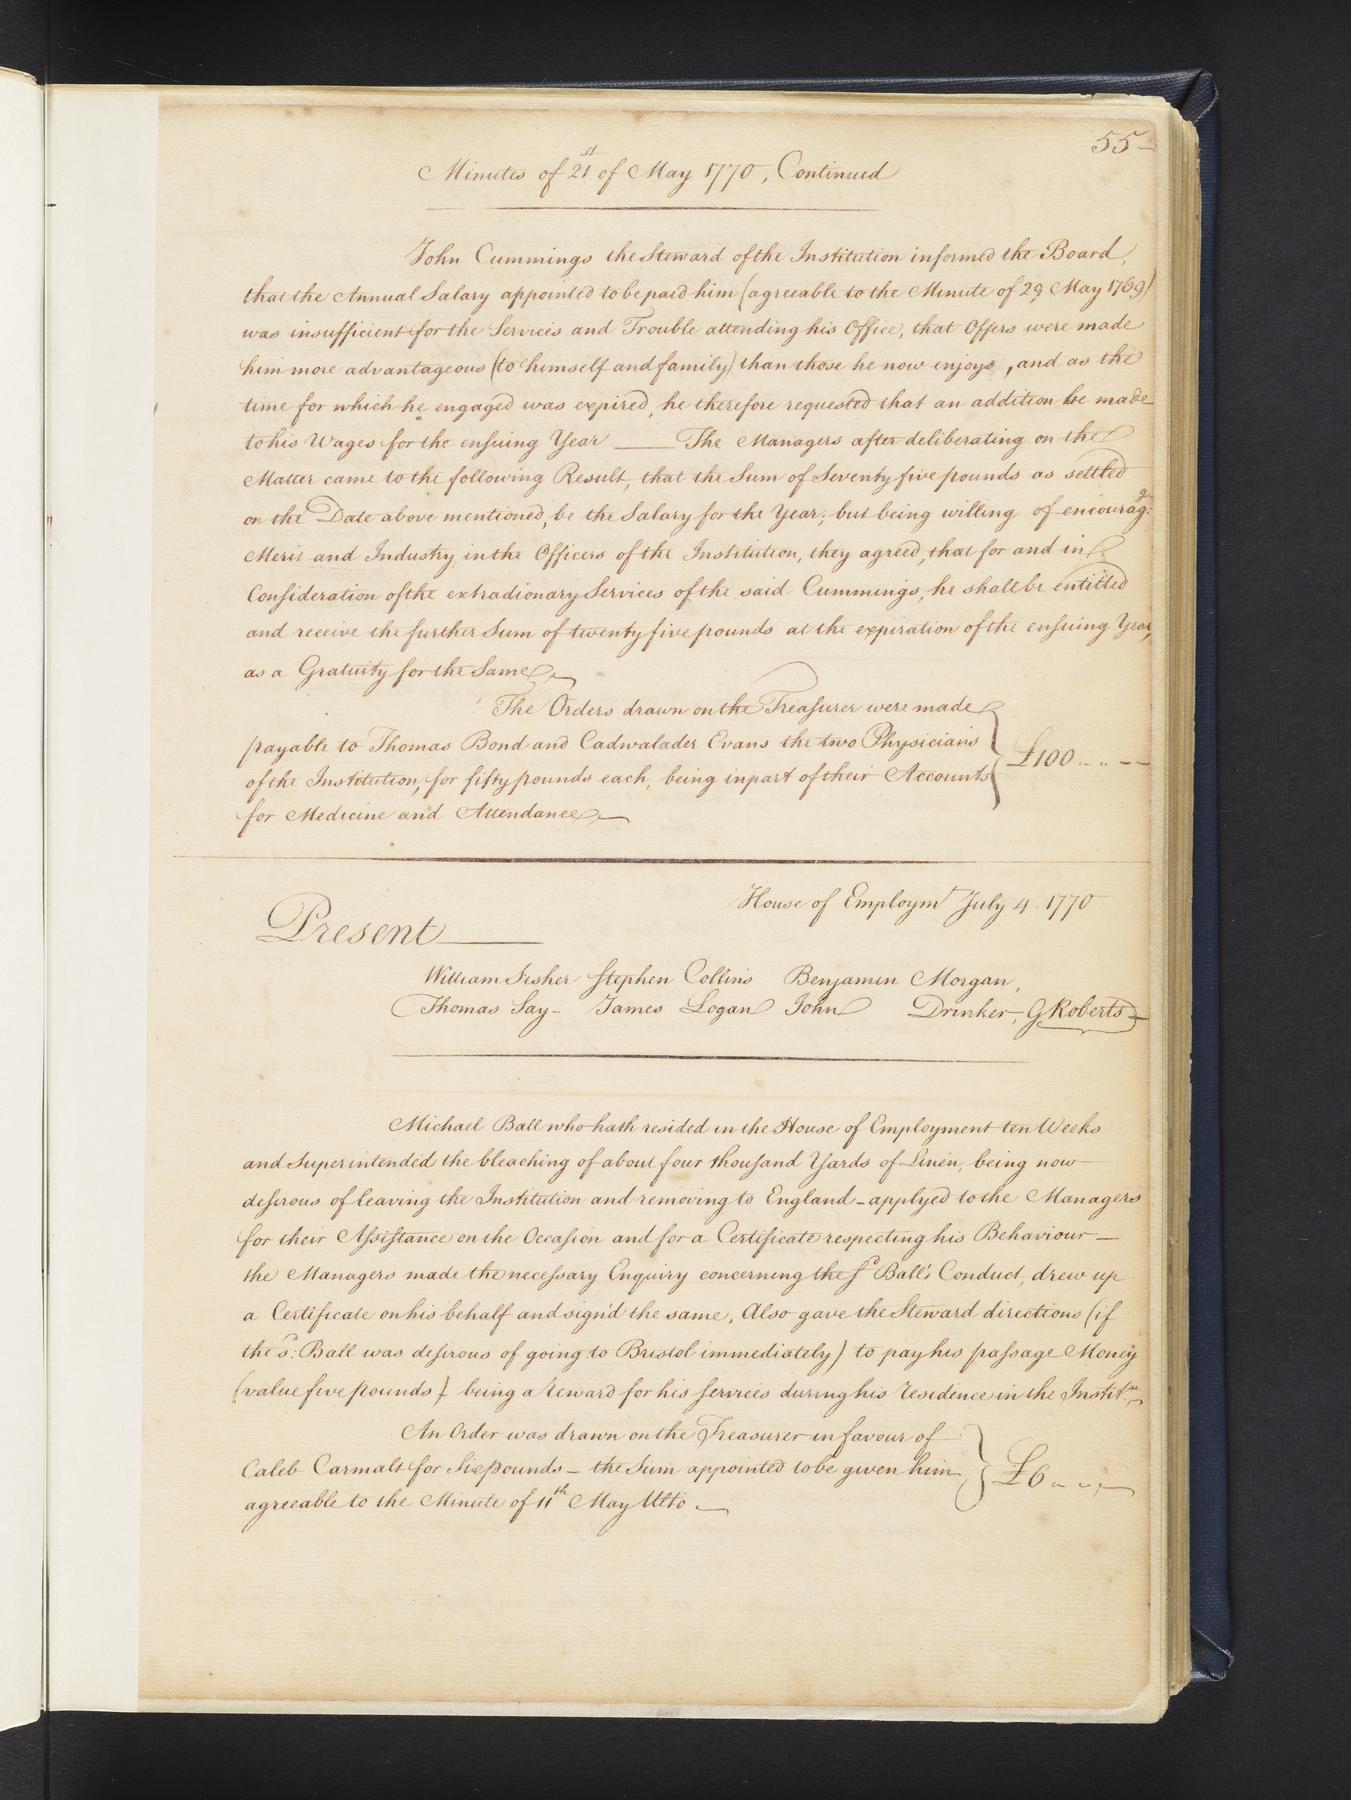 55
Minutes of 21st of May 1770, Continued
John Cummings the Steward of the Institution informed the Board,
that the Annual Salary appointed to be paid him (agreeable to the Minute of 29 May 1769)
was insufficient for the Services and Trouble attending his Office, that Offers were made
him more advantageous (to himself and family) than those he now enjoys, and as the
time for which he engaged was expired, he therefore requested that an addition be made
to his Wages for the ensuing Year —— The Managers after deliberating on the
Matter came to the following Result, that the Sum of Seventy five pounds as settled
on the Date above mentioned, be the Salary for the Year; but being willing of encourag:g
Merit and Industry in the Officers of the Institution, they agreed, that for and in
Consideration of the extradionary Services of the said Cummings, he shall be entitled
and receive the further Sum of twenty five pounds at the expiration of the ensuing Year,
as a Gratuity for the Same
The Orders drawn on the Treasurer were made
payable to Thomas Bond and Cadwalader Evans the two Physicians
of the Institution, for fifty pounds each, being in part of their Accounts
£100
for Medicine and Attendance
House of Employmt July 4 1770
Present
William Fisher Stephen Collins Benjamin Morgan,
Thomas Say - James Logan John Drinker, G Roberts
Michael Ball who hath resided in the House of Employment ten Weeks
and Superintended the bleaching of about four thousand Yards of Linen, being now
desirous of leaving the Institution and removing to England - applyed to the Managers
for their Assistance on the Occasion and for a Certificate respecting his Behaviour —
the Managers made the necessary Enquiry concerning the sd Ball's Conduct, drew up
a Certificate on his behalf and sign'd the same, Also gave the Steward directions (if
the sd: Ball was desirous of going to Bristol immediately) to pay his passage Money
(value five pounds) being a reward for his services during his residence in the Institn
An Order was drawn on the Treasurer in favour of
Caleb Carmalt for Six pounds - the Sum appointed to be given him
£6
agreeable to the Minute of 11th May Ulto